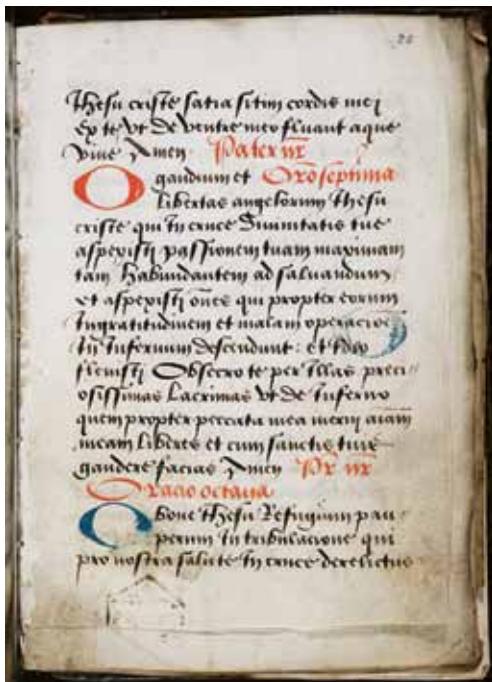 26
Ihesu criste satia sitim cordis mei
Ex te Vt de ventre meo fluant aque
vive Amen Pater nr
O gaudium et Oro septima
libertas angelorum Ihesu
criste qui In cruce Divinitatis tue
aspexisti passionem tuam maximam
tam habundantem ad salvandum
et aspexisti ones qui propter eorum
Ingratitudinem et malam operacioe
In Infernum descendunt: et Ideo
flevisti Obsecro te per Illas preci
osissimas Lacrimas Vt de Inferno
quem propter peccata mea merui aiam
meam Liberes et cum sanctis tuis
gaudere facias Amen Pr nr
Oracio octava
O bone Ihesu Refugium pau
perum In tribulacione qui
pro nostra salute In cruce derelictus